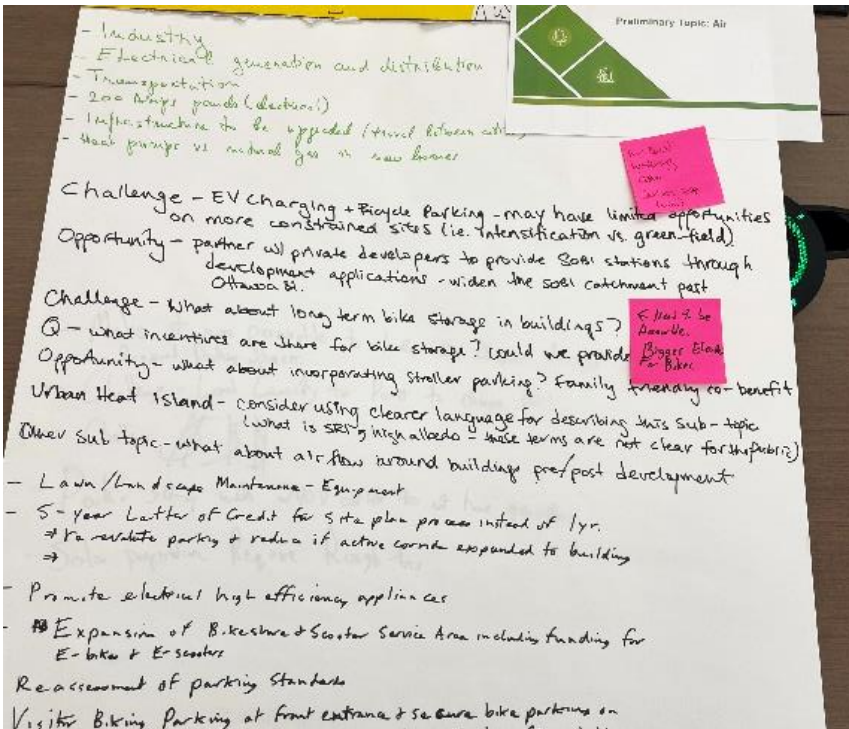 Preliminary Topic: Air
- Industry
- Electrical generation and distribution
- Transportation
- 200 Amps panels (electrical)
- Infrastructure to be upgraded (travel between
- Heat pumps vs natural gas in new homes
Challenge - EV Charging + Bicycle Parking - may have limited opportunities
on more constrained sites (ie. intensification vs. green-field)
Opportunity - partner w/ private developers to provide SOBI stations through
development applications - widen the SOBI catchment past
Ottawa St.
Challenge - What about long term bike storage in buildings?
Q - what incentives are there for bike storage? Could we provide
Opportunity - what about incorporating stroller parking? Family friendly co-benefit
Urban Heat Island - consider using clearer language for describing this sub-topic
(what is SRI, high albedo - these terms are not clear for the public)
Other Sub topic - what about air flow around buildings pre/post development
Bigger
For Bikes
- Lawn/Landscape Maintenance - Equipment
- 5-year Letter of Credit for Site plan process instead of 1yr.
⇒ re-evaluate parking & reduce if active corridor expanded to building
⇒
- Promote electrical high efficiency appliances
- Expansion of Bikeshare & Scooter Service Area including funding for
E-bikes & E-scooters
Re-assessment of parking Standards
Visitor Biking Parking at front entrance & secure bike parking on